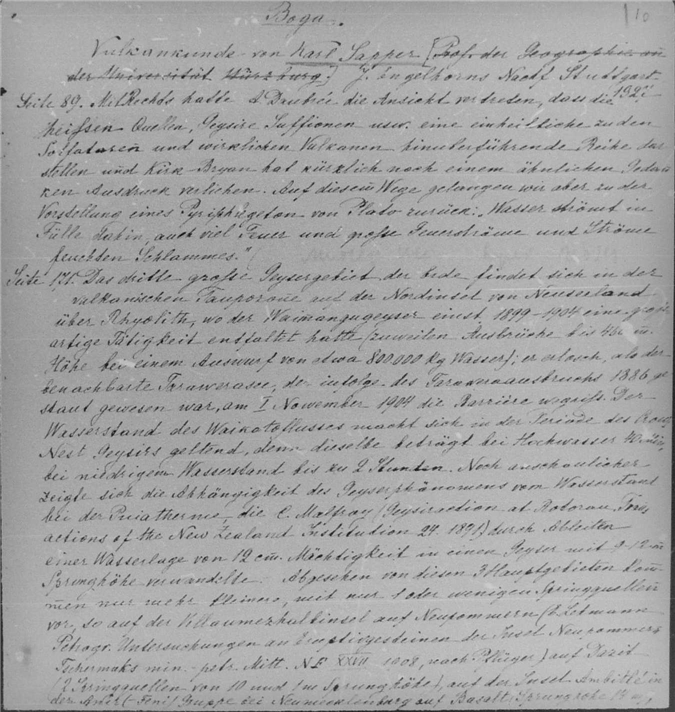 Bogu.
10
Vulkankunde von Karl Sapper [Prof. der Geographie an
der Universität Würzburg] J Engelhorns Nachf Stuttgart
1927
Seite 89. Mit Rechts hatte A Daubrée die Ansicht vertreten, dass die
heissen Quellen, Geysire Suffionen usw. eine einheitliche zu den
Solfataren und wirklichen Vulkanen hinüberführende Reihe dar
stellen und Kirk Bryan hat kürzlich noch einem ähnlichen Gedan
ken Ausdruck verliehen. Auf diesem Wege gelangen wir aber zu der
Vorstellung eines Pyriphlegeton von Plato zurück: „Wasser strömt in
Fülle dahin, auch viel Feuer und große Feuerströme und Ströme
feuchten Schlammes."
Seite 171. Das dritte große Geysergebiet der Erde findet sich in der
vulkanischen Taupozone auf der Nordinsel von Neuseeland
über Rhyolith, wo der Waimangugeyser einst 1899-1904 eine groß
artige Tätigkeit entfaltet hatte (zuweilen Ausbrüche bis m.
Höhe bei einem Auswurf von etwa 800 000 Kg Wasser); er erlosch, als der
benachbarte Tarawerasee, der infolge des Taraweraausbruchs 1886 ge
staut gewesen war, am I November 1904 die Barriere wegriß. Der
Wasserstand des Waikatoflusses macht sich in der Periode des Crow
Nest Geysirs geltend, denn dieselbe beträgt bei Hochwasser 40 min,
bei niedrigem Wasserstand bis zu 2 Stunden. Noch anschaulicher
zeigte sich die Abhängigkeit des Geyserphänomens vom Wasserstand
bei der Puiatherme, die C. Malfroy (Geysiraction at Rotorua Trans
actions of the New Zealand Institution 24. 1891) durch Ableiten
einer Wasserlage von 12 cm. Mächtigkeit in einen Geyser mit 9-12 m
Sprunghöhe verwandelte. Abgesehen von diesen 3 Hauptgebieten kom
men nur mehr kleinere, mit nur 1 oder wenigen Springquellen
vor, so auf der Willaumezhalbinsel auf Neupommern (
Petrogr. Untersuchungen an Eruptivgesteinen der Insel Neupommern
Tschermaks min. petr. Mitt. N F XXVII 1908, nach Pflüger) auf
(2 Springquellen von 10 und 1 m Sprunghöhe), auf der Insel Ambitlé in
der Anir (Feni) Gruppe bei Neumecklenburg auf Basalt: Sprunghöhe